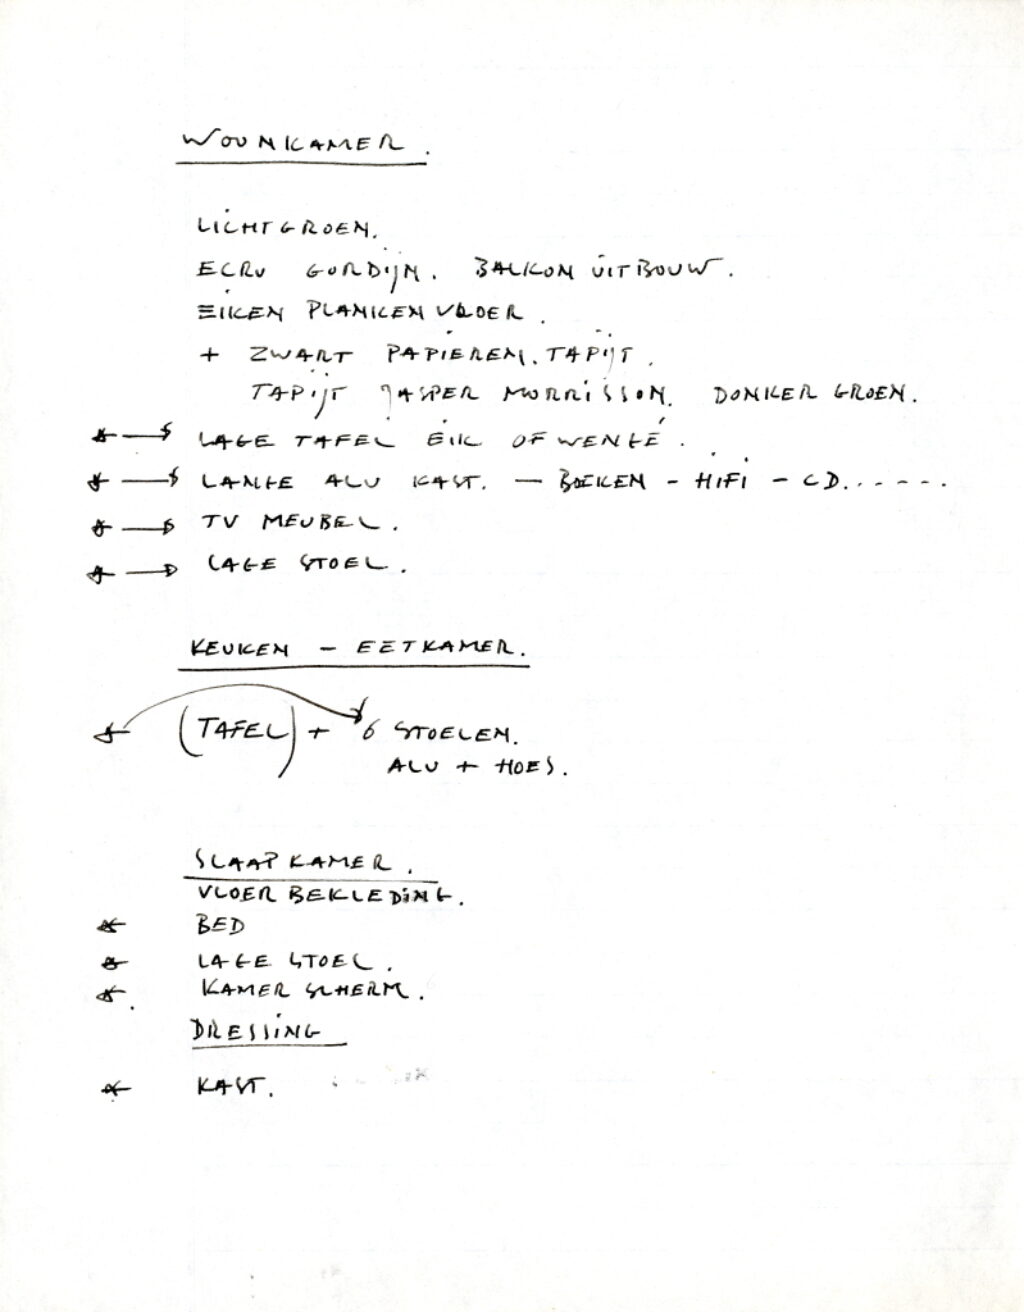 WOONKAMER.
LICHTGROEN.
ECRU GORDIJN. BALKON UITBOUW.
EIKEN PLANKENVLOER.
+ ZWART PAPIEREN. TAPIJT.
TAPIJT JASPER MORRISSON. DONKER GROEN.
* → LAGE TAFEL EIK OF WENGÉ.
* → LANGE ALU KAST. — BOEKEN - HIFI - CD.......
* → TV MEUBEL.
* → LAGE STOEL.
KEUKEN - EETKAMER.
* (TAFEL) + 6 STOELEN.
ALU + HOES.
SLAAPKAMER.
VLOERBEKLEDING.
* BED
* LAGE STOEL.
* KAMERSCHERM.
DRESSING
* KAST.